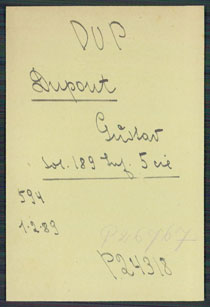 DUP
Dupont
Gustav
sol. 189 Inf. 5 cie
594
1.2.89
P26767
P24318